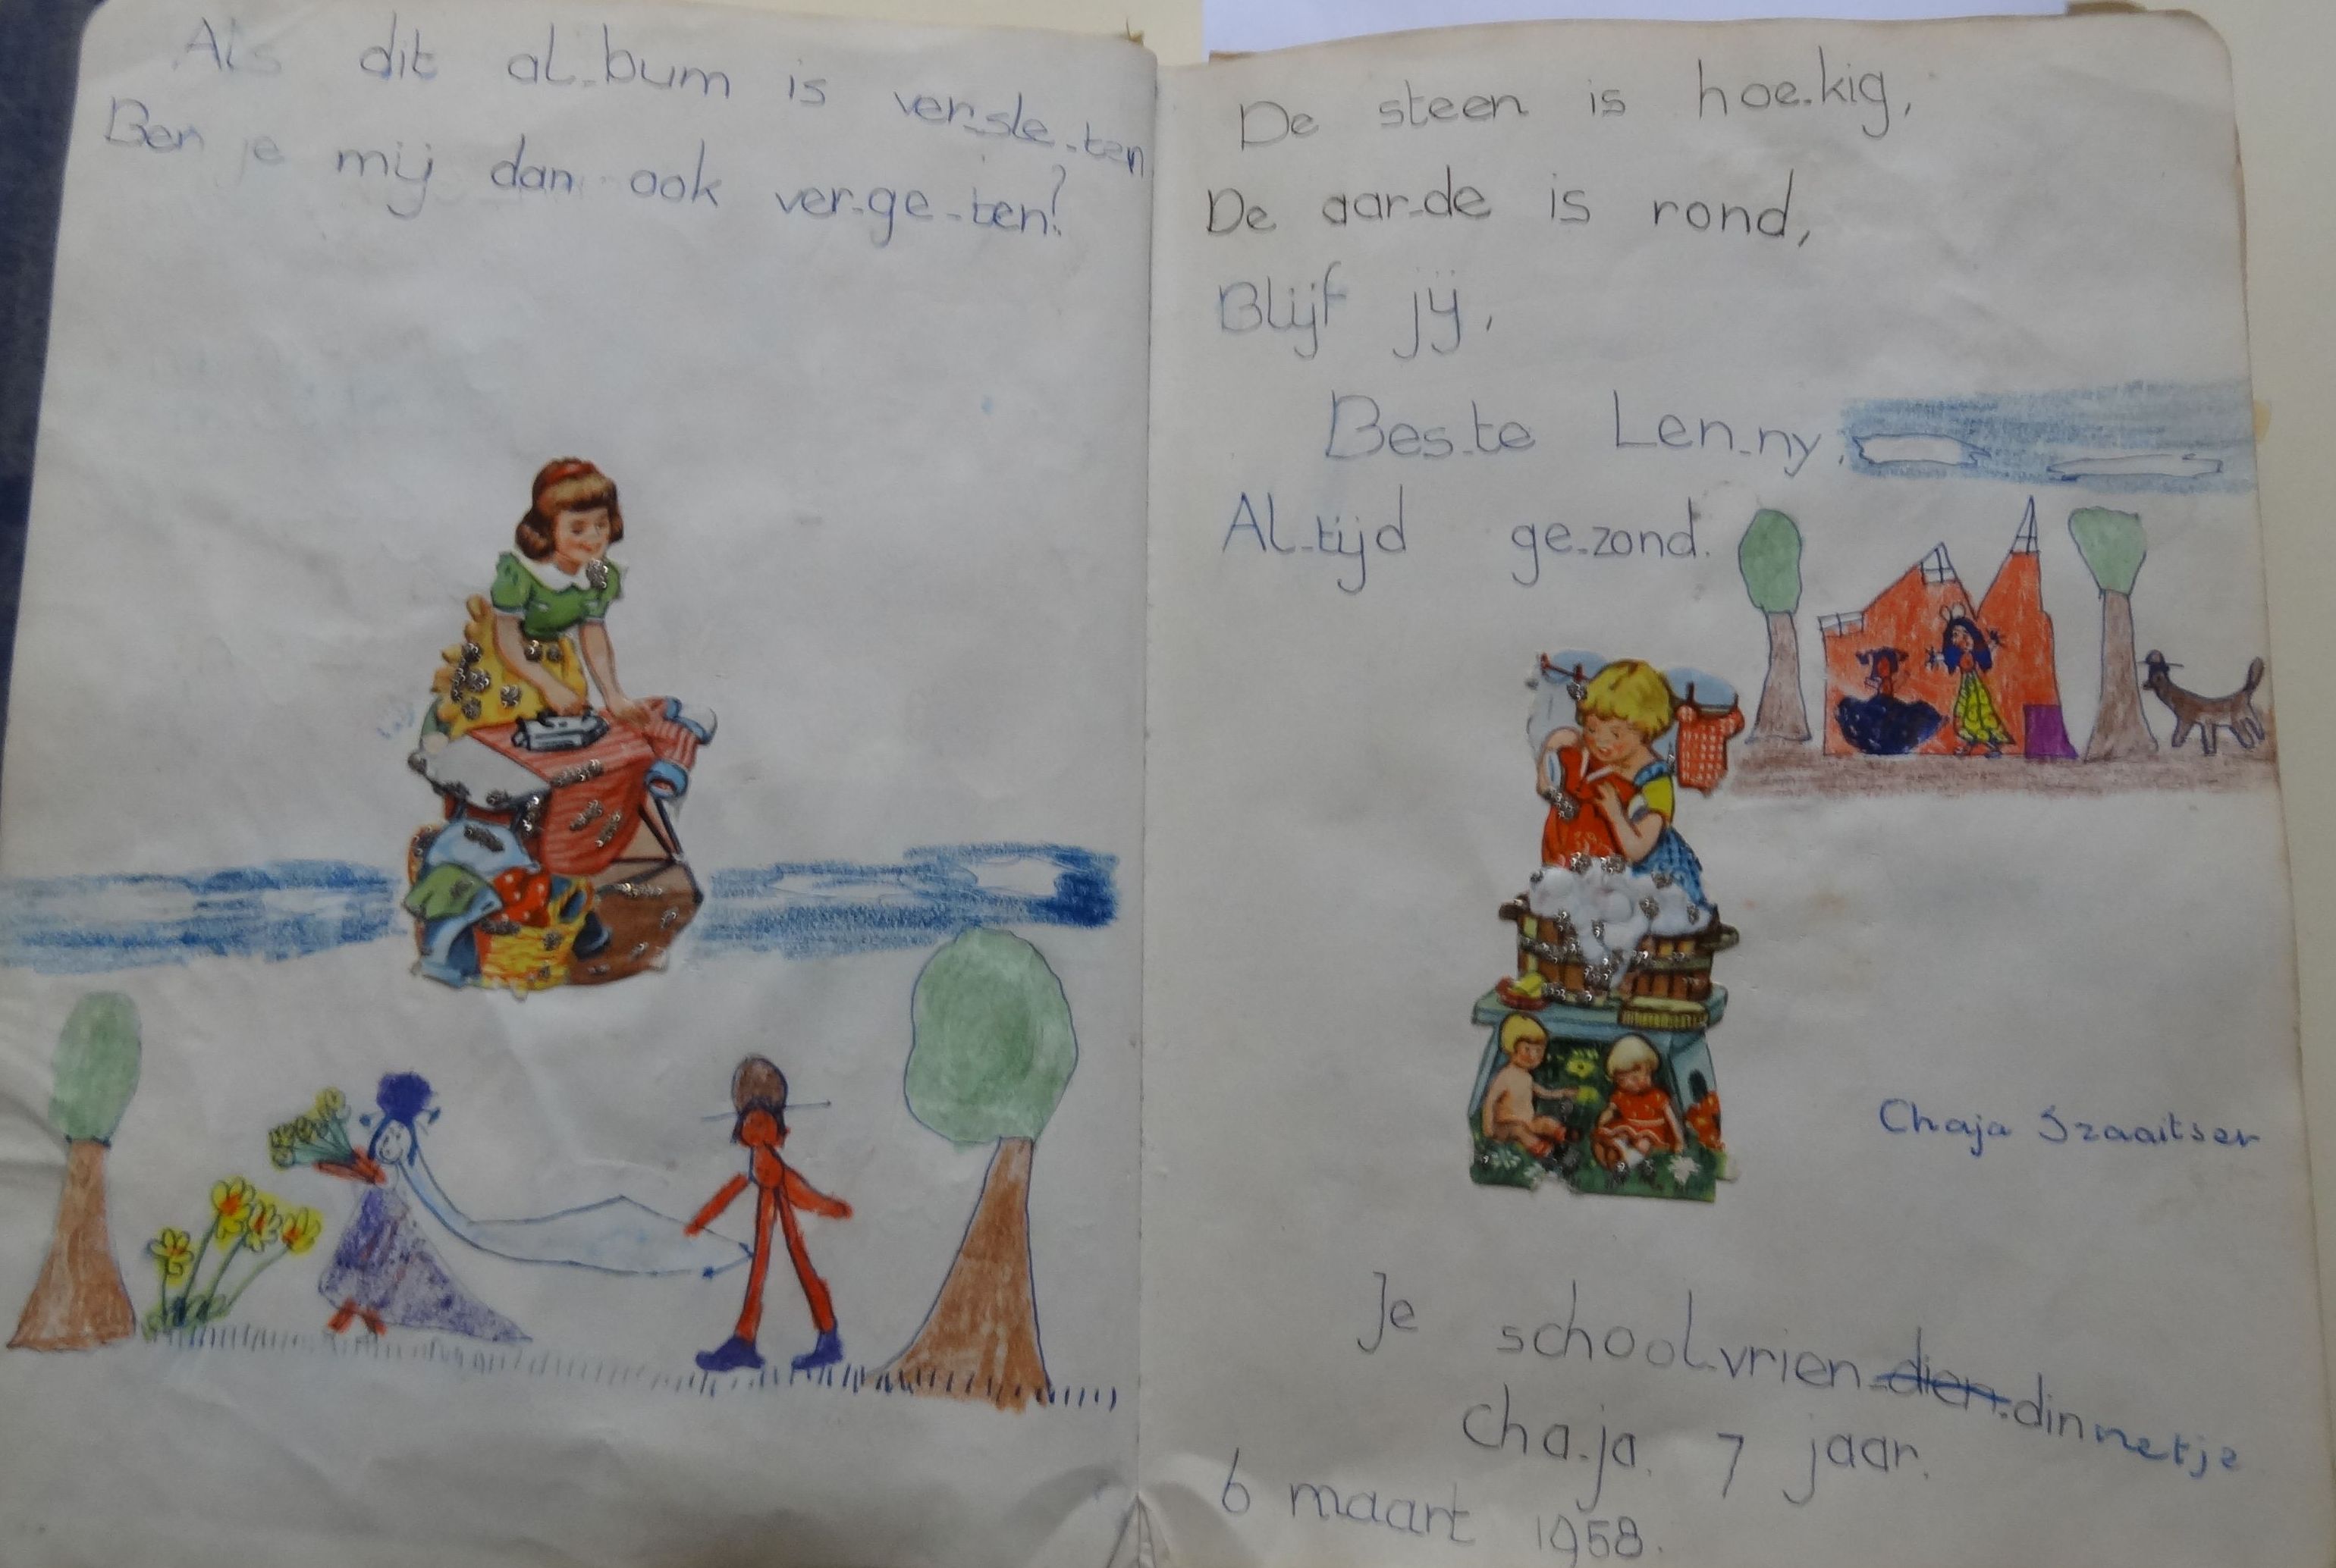 Als dit al-bum is ver-sle-ten
Ben je mij dan ook ver-ge-ten?
De steen is hoe-kig,
De aar-de is rond,
Blijf jij,
Bes-te Len-ny,
Al-tijd ge-zond.
Chaja Szaaitser
Je school-vrien-dien-dinnetje
Cha-ja 7 jaar.
6 maart 1958.